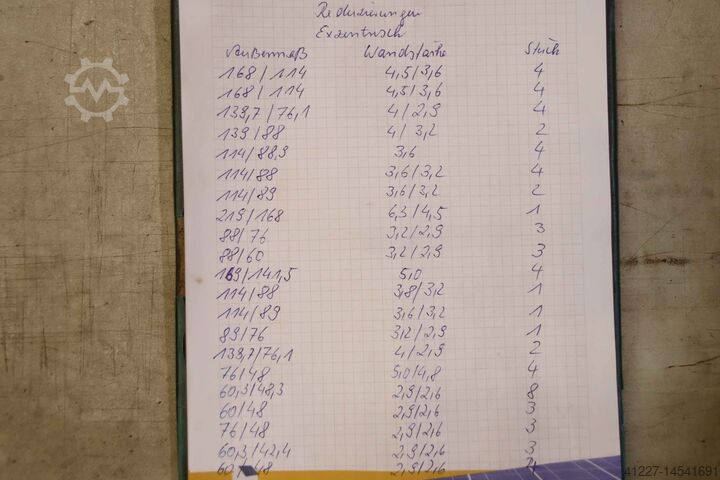 Reduzierungen
Exzentrisch
Außenmaß Wandstärke Stück
168/114 4,5/3,6 4
168/114 4,5/3,6 4
139,7/76,1 4/2,9 4
139/88 4/3,2 2
114/88,9 3,6 4
114/88 3,6/3,2 4
114/89 3,6/3,2 2
219/168 6,3/4,5 1
88/76 3,2/2,9 3
88/60 3,2/2,9 3
169/141,5 5,0 4
114/88 3,8/3,2 1
114/89 3,6/3,2 1
89/76 3,2/2,9 1
139,7/76,1 4/2,9 2
76/48 5,0/4,8 4
60,3/48,3 2,9/2,6 8
60/48 2,9/2,6 3
76/48 2,9/2,6 3
60,3/42,4 2,9/2,6 3
60/48 2,9/2,6 4
41227-14541691